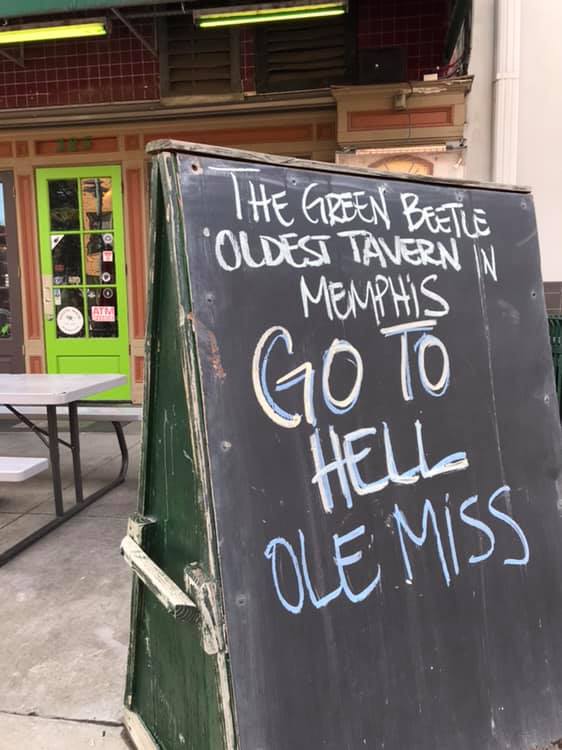 THE GREEN BEETLE
OLDEST TAVERN IN
MEMPHIS
GO TO
HELL
OLE MISS
ATM